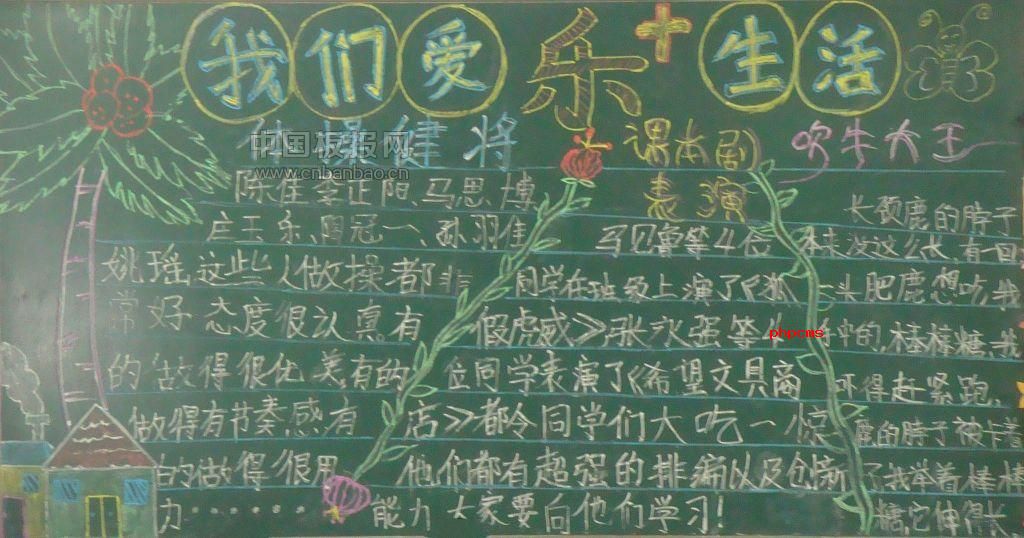 我们爱乐+生活
体操健将
陈佳李正阳、马思博、
庄玉乐、周冠一、孙羽佳
姚瑶,这些人做操都非
常好,态度很认真。有
的做得很优美,有的
做得有节奏感,有
的做得很用
力......
课本剧
表演
马见鲁等4位
同学在班级上演了《狐
假虎威》张永强等
位同学表演了《希望文具商
店》都令同学们大吃一惊
他们都有超强的排编以及创新
能力 大家要向他们学习!
吹牛大王
长颈鹿的脖子
本来没这么长,有一回
一头肥鹿想吃我
中的,棒棒糖,我
得赶紧跑
鹿的脖子被卡着
了我举着棒棒
糖,它伸得长
中国板报网
www.cnbanbao.cn
phpcms